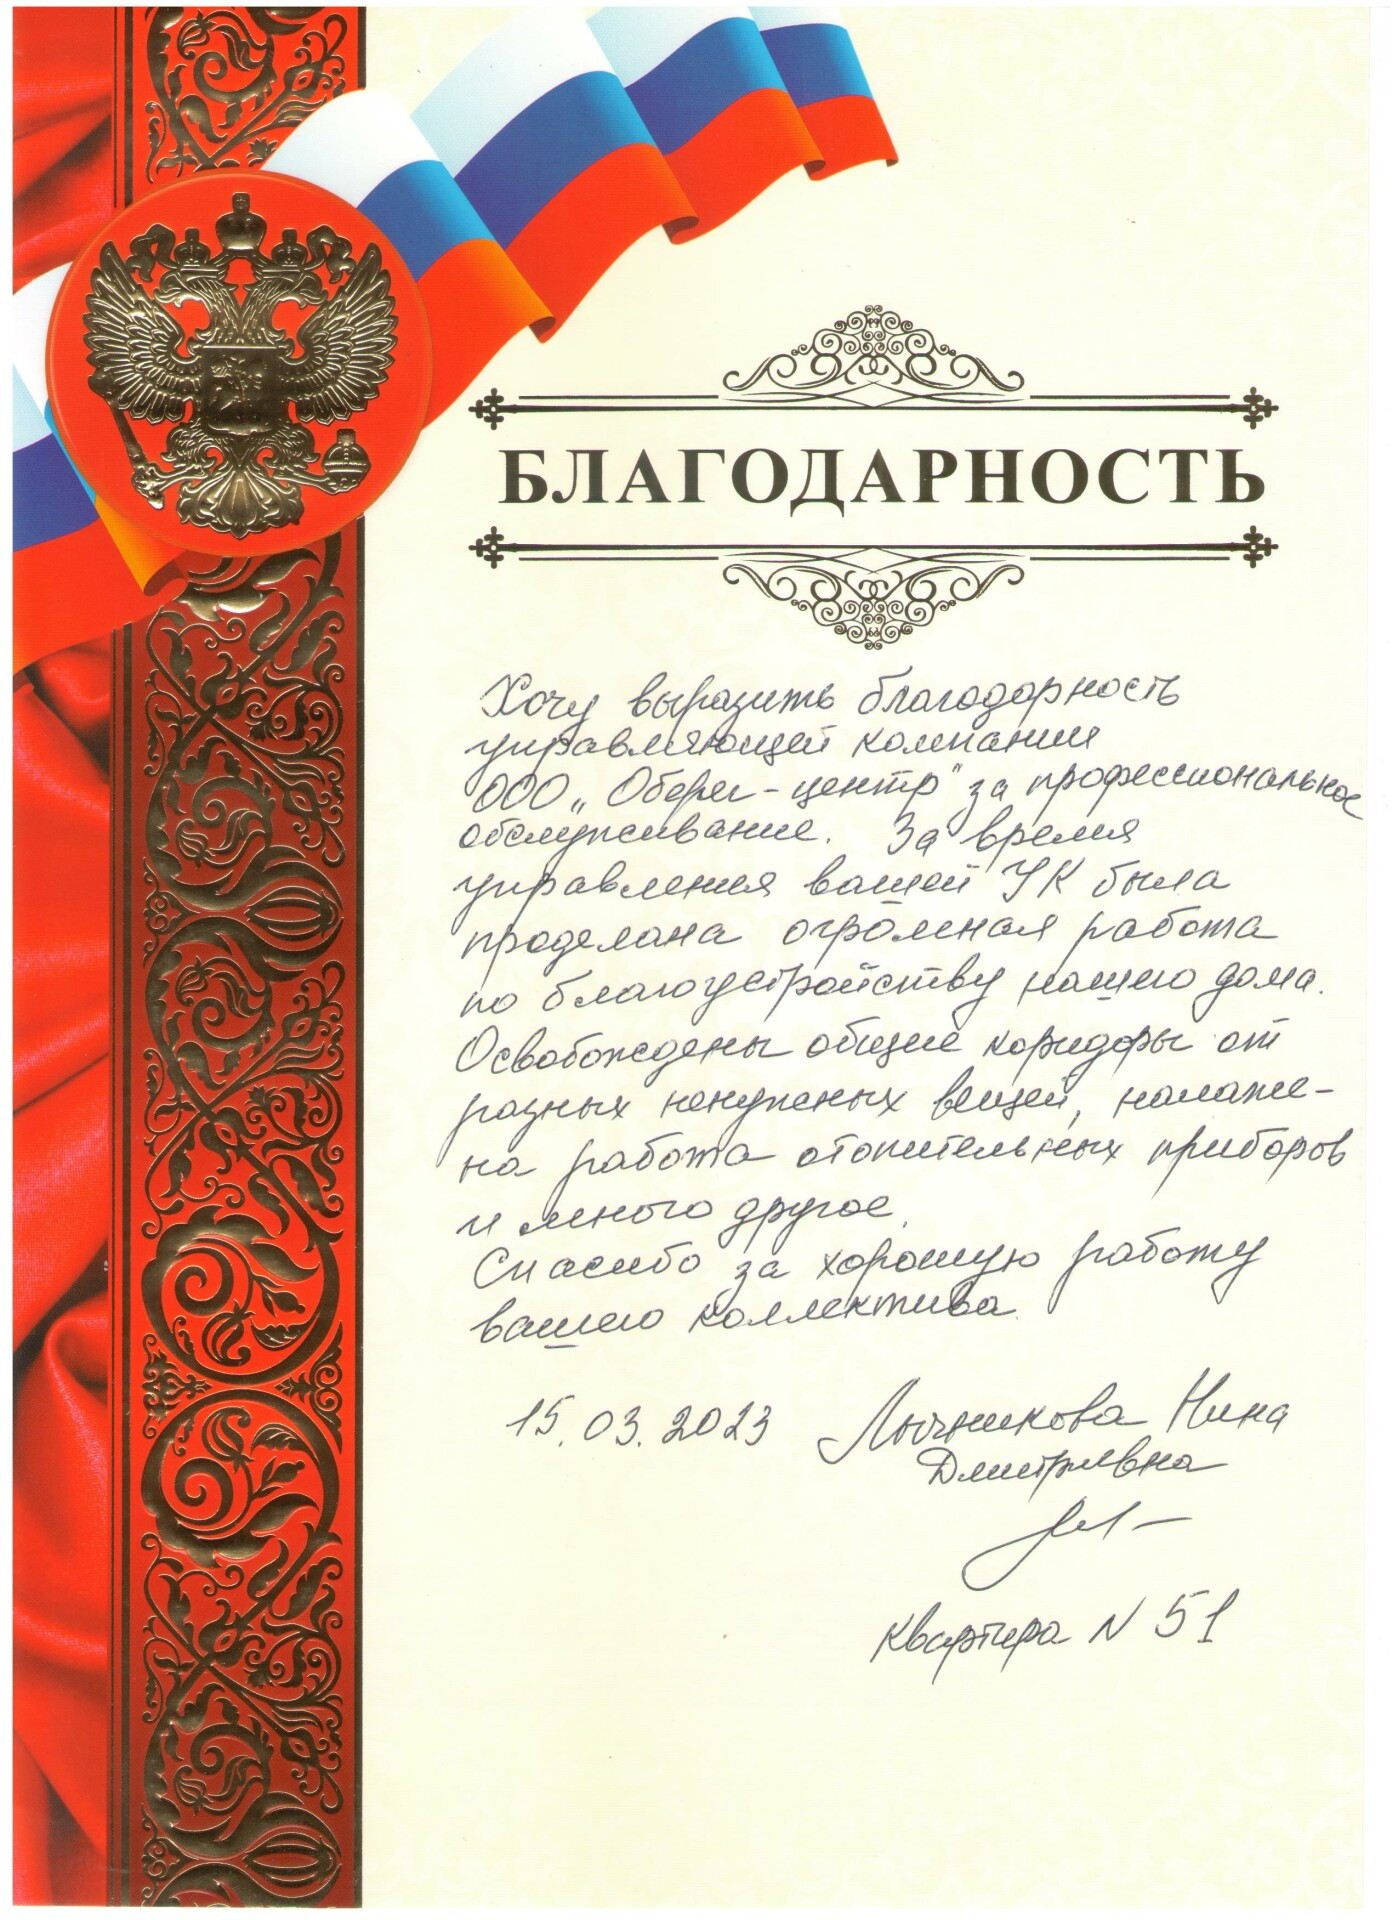 БЛАГОДАРНОСТЬ
Хочу выразить благодарность
управляющей компании
ООО „Оберег-центр" за профессиональное
обслуживание. За время
управления вашей УК была
проделана огромная работа
по благоустройству нашего дома.
Освобождены общие коридоры от
разных ненужных вещей, налаже-
на работа отопительных приборов
и много другое.
Спасибо за хорошую работу
вашего коллектива.
15.03.2023 Лычникова Нина
Дмитриевна
Квартира N 51